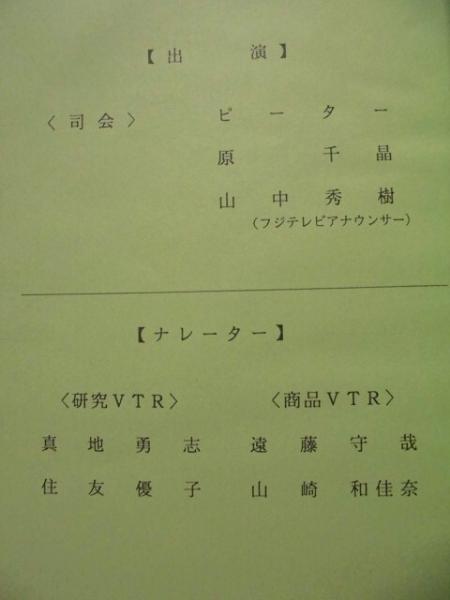 【出　演】
〈司会〉　ピーター
原　千晶
山中秀樹
(フジテレビアナウンサー)
【ナレーター】
〈研究ＶＴＲ〉　〈商品ＶＴＲ〉
真地勇志　遠藤守哉
住友優子　山崎和佳奈